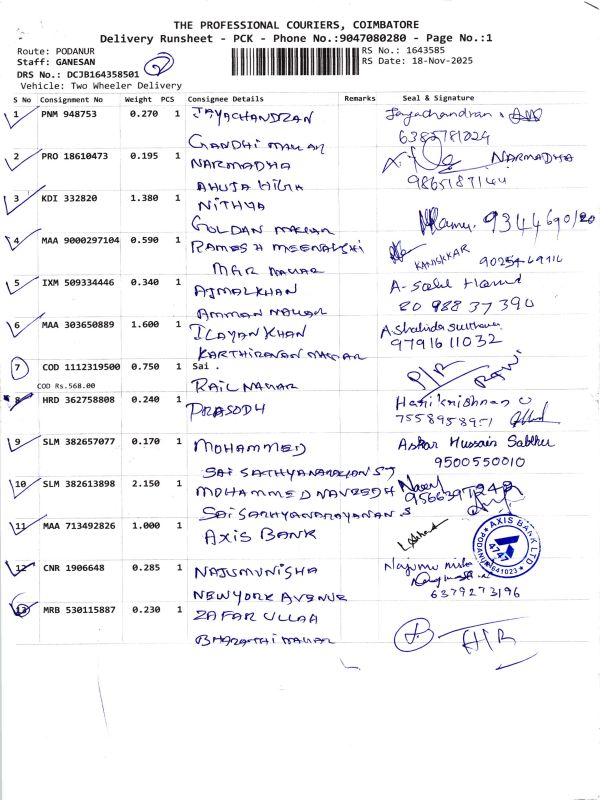 THE PROFESSIONAL COURIERS, COIMBATORE
Delivery Runsheet - PCK - Phone No.:9047080280 - Page No.:1
Route: PODANUR
RS No.: 1643585
Staff: GANESAN
RS Date: 18-Nov-2025
DRS No.: DCJB164358501 2
Vehicle: Two Wheeler Delivery
S No Consignment No Weight PCS Consignee Details Remarks Seal & Signature
1 PNM 948753 0.270 1 JAYACHANDRAN Jayachandran
GANDHI NAGAR 6385781024
2 PRO 18610473 0.195 1 NARMADHA NARMADHA
AHUJA 9865187144
3 KDI 332820 1.380 1 NITHYA
GOLDAN NAGAR
4 MAA 9000297104 0.590 1 RAMESH MEENAKSHI KANISKKAR
MGR NAGAR
5 IXM 509334446 0.340 1 AJMALKHAN A-
AMMAN NAGAR 80 988 37 390
6 MAA 303650889 1.600 1 ILAYAN KHAN
KARTHIRAVAN NAGAR 9791611032
7 COD 1112319500 0.750 1 Sai .
COD Rs.568.00 RAIL NAGAR
8 HRD 362758808 0.240 1 PRASODH Harikrishnan
7558958951
9 SLM 382657077 0.170 1 MOHAMMED Askar Hussain
SAI SATHYANARAYAN ST 9500550010
10 SLM 382613898 2.150 1 MOHAMMED NAVEEDH
SAI SATHYANARAYANAN S
11 MAA 713492826 1.000 1 AXIS BANK
AXIS BANK LTD
4747
PODANUR
641023
12 CNR 1906648 0.285 1 NAJUMUNISHA
NEWYORK AVENUE 6379273196
13 MRB 530115887 0.230 1 ZAFAR ULLAA
BHARATHI NAGAR